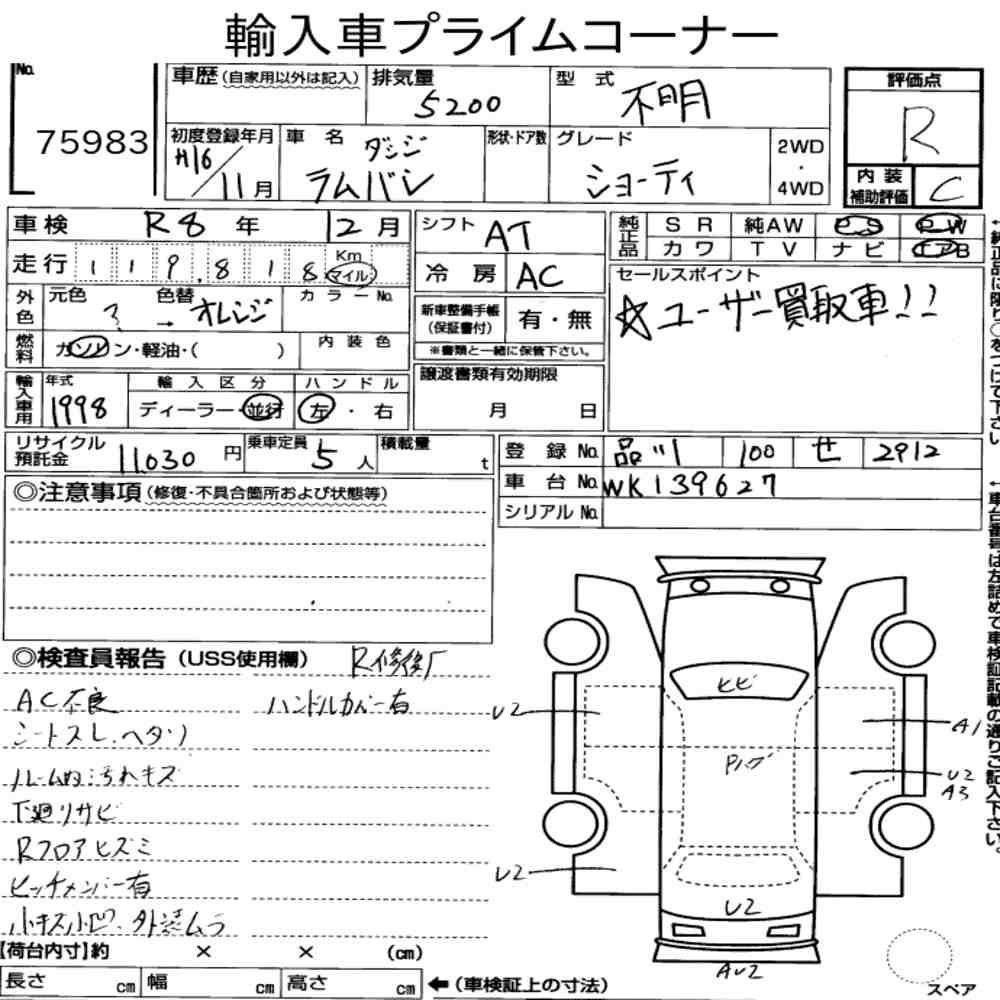 輸入車プライムコーナー
No. 75983
車歴 (自家用以外は記入)
排気量 5200
型式 不明
評価点 R
初度登録年月 H16/11月
車名 ダッジ ラムバン
形状・ドア数
グレード ショーティ
2WD・4WD
内装補助評価 C
車検 R8年 12月
シフト AT
純正品 SR 純AW PS PW
カワ TV ナビ エアB
走行 119,818 Km マイル
冷房 AC
セールスポイント
☆ユーザー買取車!!
外色 元色 色替 → オレンジ カラーNo.
新車整備手帳(保証書付) 有・無
※書類と一緒に保管下さい。
燃料 ガソリン・軽油・( ) 内装色
譲渡書類有効期限
月 日
輸入車用 年式 1998
輸入区分 ディーラー・並行
ハンドル 左・右
リサイクル預託金 11,030円
乗車定員 5人
積載量 t
登録No. 品川 100 せ 2912
車台No. WK139627
シリアルNo.
◎注意事項(修復・不具合箇所および状態等)
◎検査員報告(USS使用欄)
AC不良 ハンドルカバー有
シートスレ.ヘタリ
ルーム内汚れキズ
下廻りサビ
Rフロアヒズミ
ヒッチメンバー有
小キズ小凹.外装ムラ
ヒビ
U2
A1
U2
A3
U2
U2
AU2
【荷台内寸】約 × × (cm)
長さ cm 幅 cm 高さ cm ←(車検証上の寸法)
スペア
←純正品に限り○をつけて下さい
←車台番号は左詰めで車検証記載の通りご記入下さい。